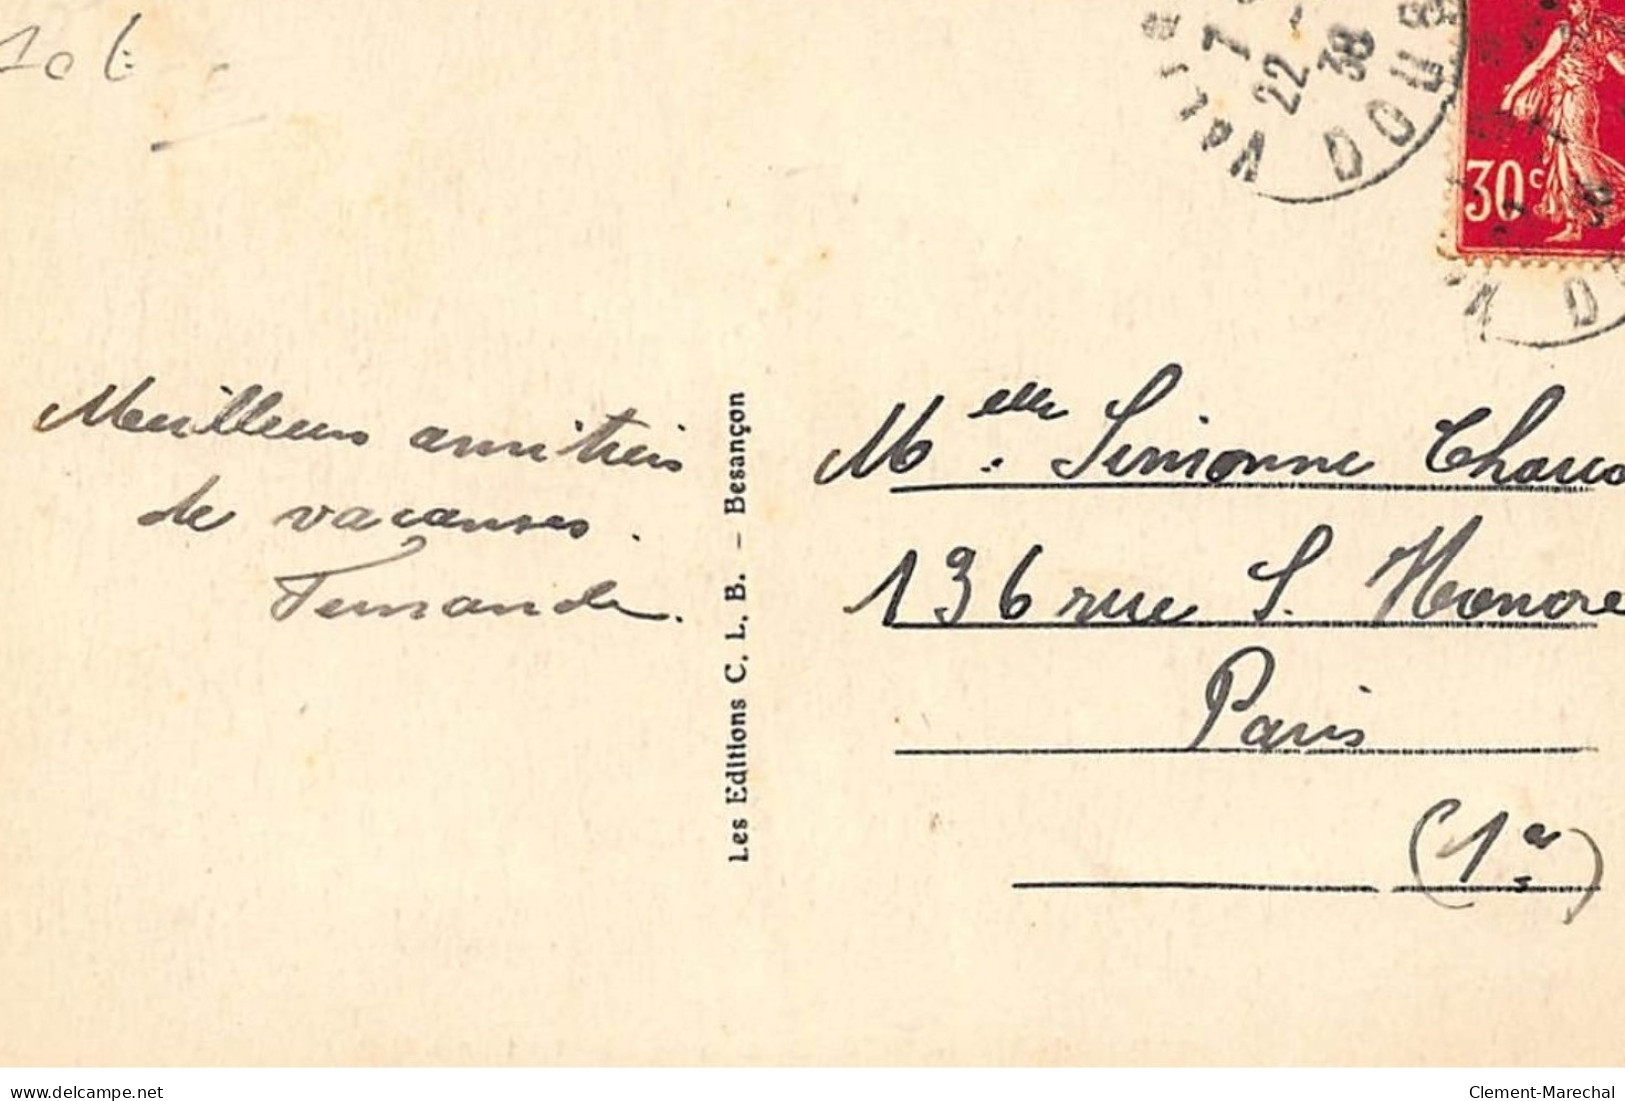 10 €
VALD
7
22
38
DOUB
30c
Meilleures amitiés
de vacances.
Fernande.
Les Editions C. L. B. – Besançon
Melle. Simonne
136 rue S. Honoré
Paris
(1er)
delcampe.net
Clement-Marechal